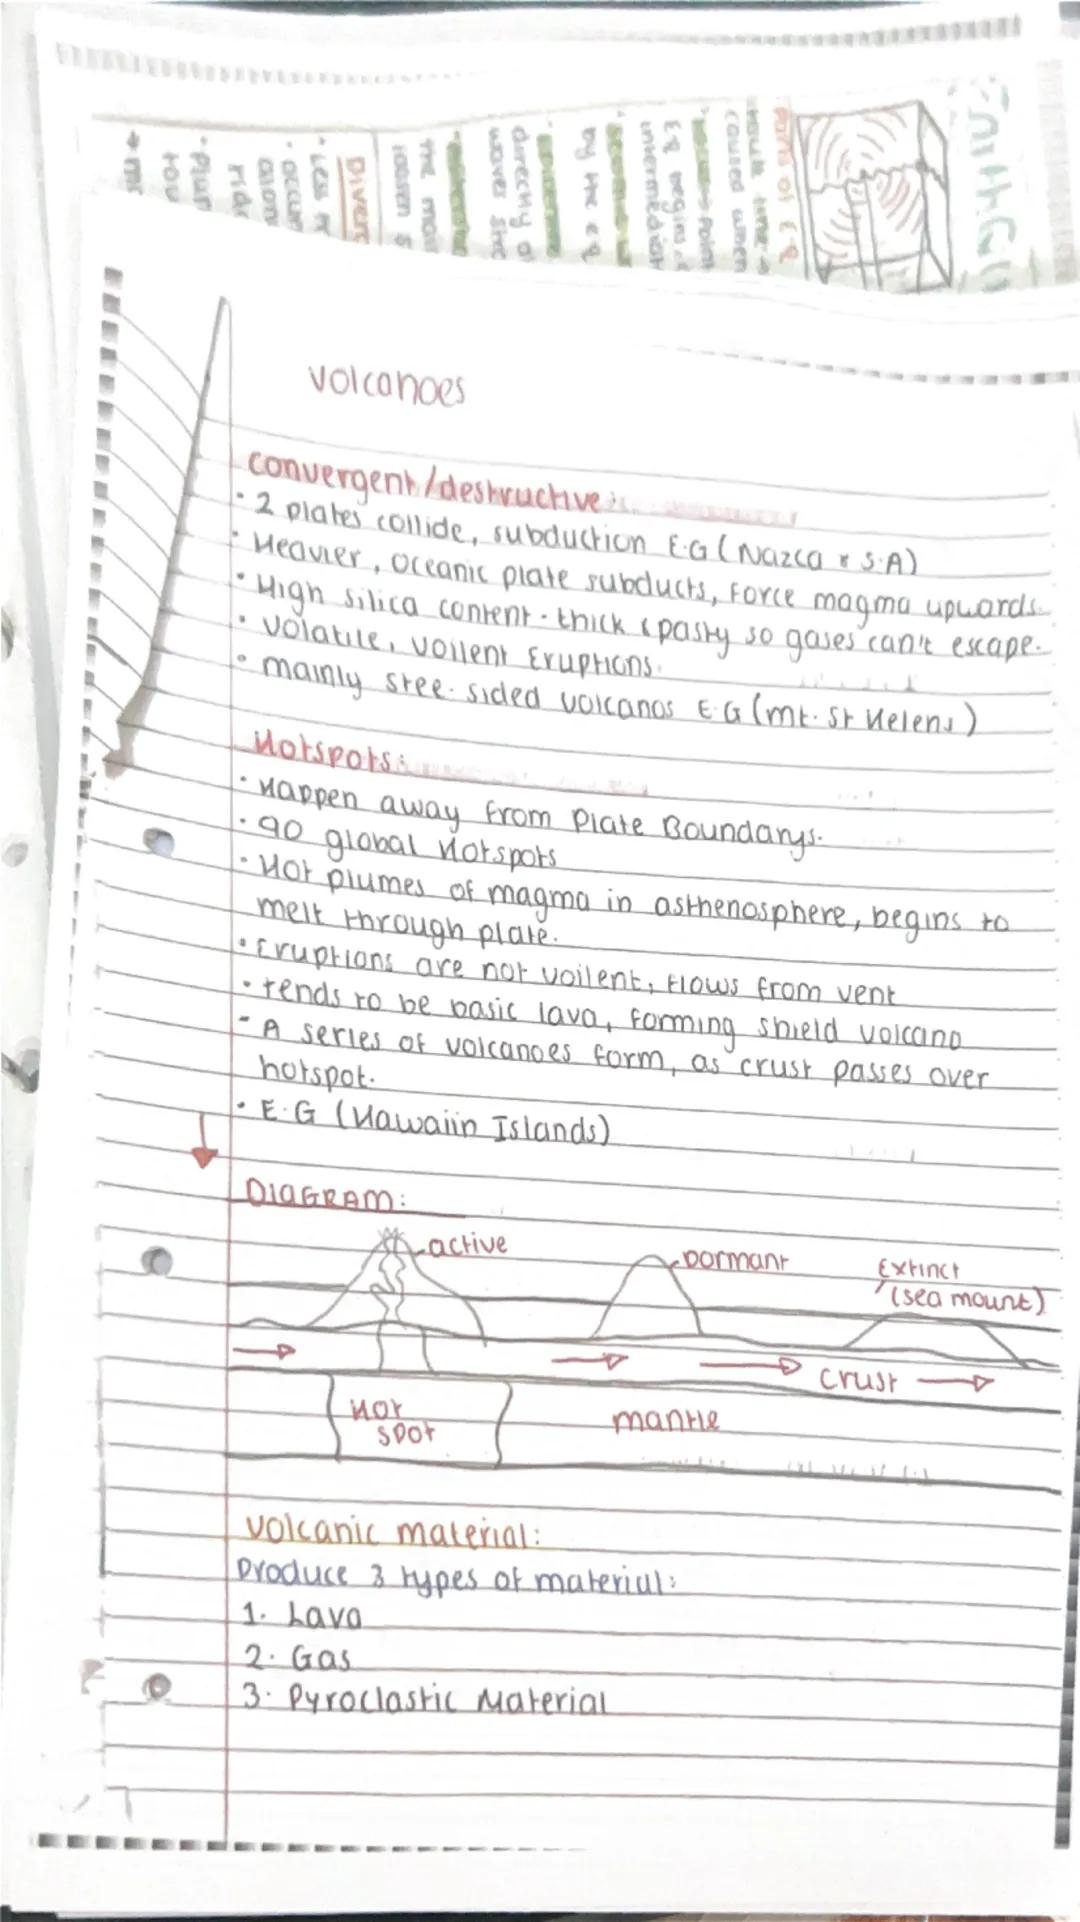 EARTHQU
Parts of EQ
caused when
Point
EQ begins
intermediat
by the eq
directly a
waves stre
the mai
loosen s
Diverg
Less
occur
along
ridg
Plum
tow
volcanoes
convergent/destructive:
· 2 plates collide, subduction E.G (Nazca & S.A)
· Heavier, oceanic plate subducts, force magma upwards.
· High silica content - thick & pasty so gases can't escape.
· volatile, voilent Eruptions.
· mainly stee-sided volcanos E.G (mt. St Helens)
Hotspots:
· Happen away from Plate Boundarys.
· 90 global Hotspots
· Hot plumes of magma in asthenosphere, begins to
melt through plate.
· Eruptions are not voilent, flows from vent
· tends to be basic lava, forming shield volcano
- A series of volcanoes form, as crust passes over
hotspot.
· E.G (Hawaiin Islands)
DIAGRAM:
active
Dormant
Extinct
(sea mount)
crust
Hot
spot
mantle
volcanic material:
Produce 3 types of material:
1. Lava
2. Gas
3. Pyroclastic Material